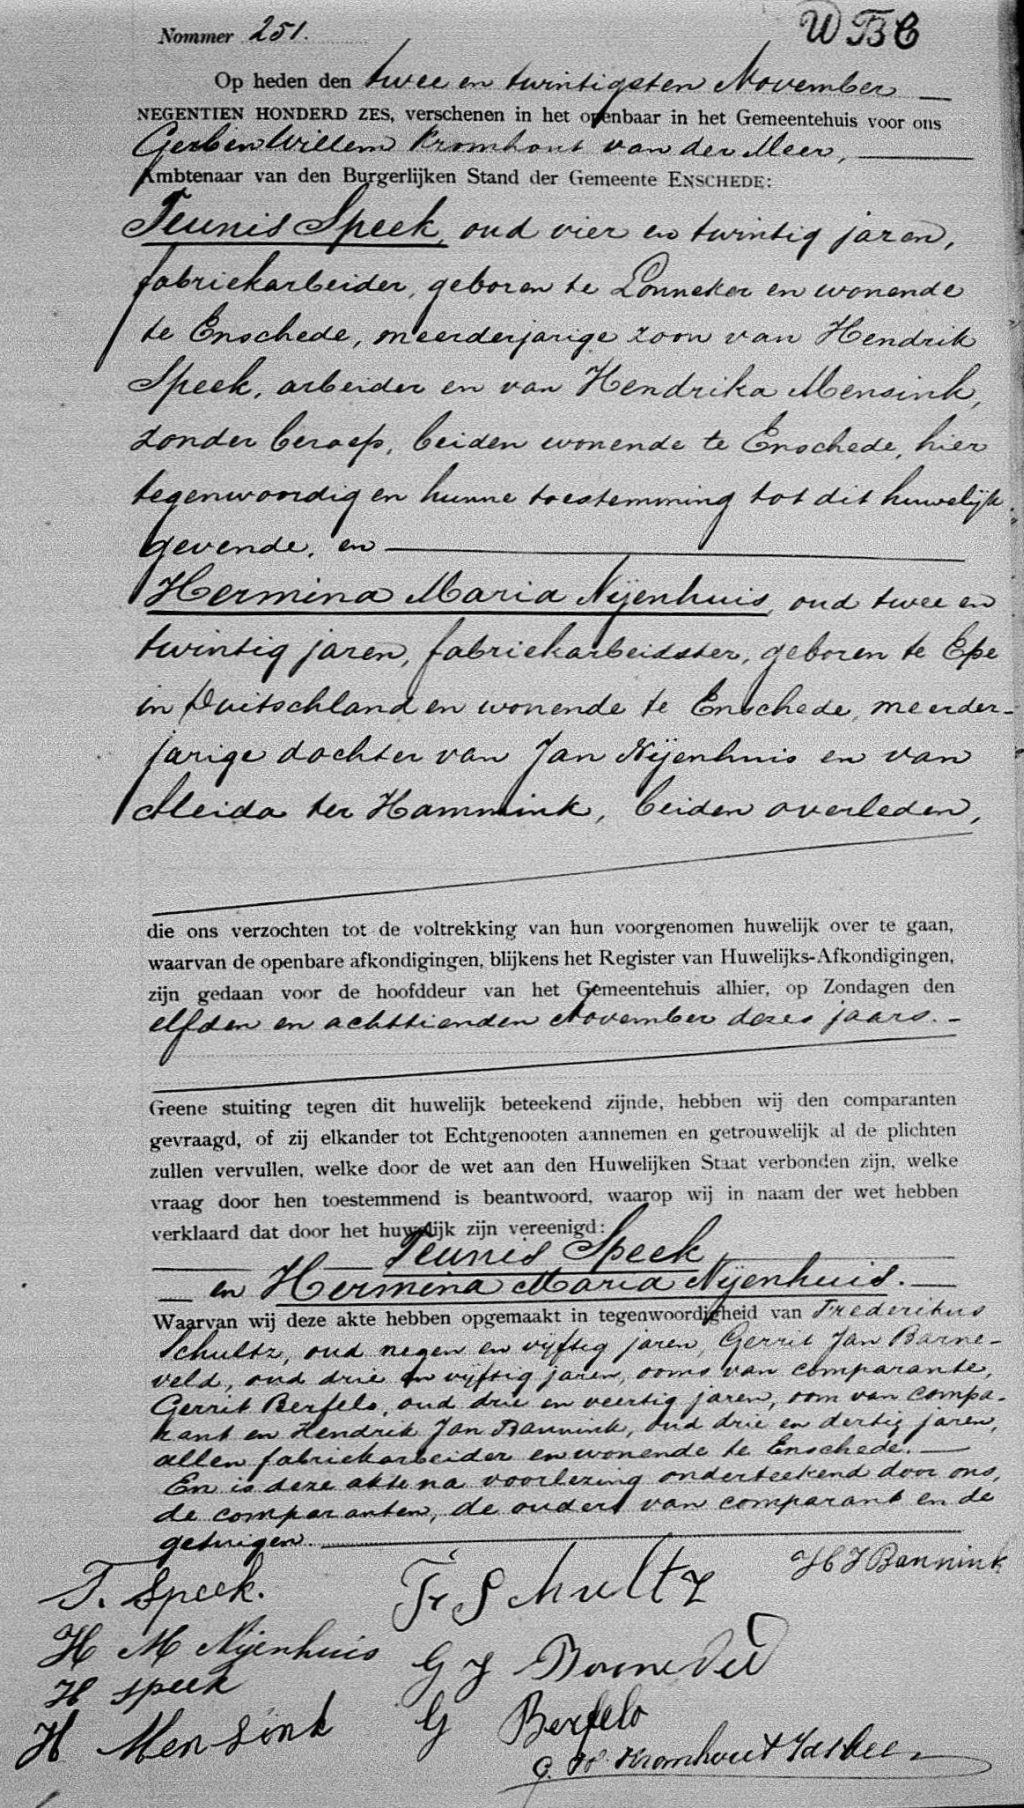 Nommer 251.
W B C
Op heden den twee en twintigsten November
NEGENTIEN HONDERD ZES, verschenen in het openbaar in het Gemeentehuis voor ons
Gerbin Willem Kromhout van der Meer,
Ambtenaar van den Burgerlijken Stand der Gemeente ENSCHEDE:
Teunis Speek, oud vier en twintig jaren,
fabriekarbeider, geboren te Lonneker en wonende
te Enschede, meerderjarige zoon van Hendrik
Speek, arbeider en van Hendrika Mensink,
zonder beroep, beiden wonende te Enschede, hier
tegenwoordig en hunne toestemming tot dit huwelijk
gevende, en
Hermina Maria Nijenhuis, oud twee en
twintig jaren, fabriekarbeidster, geboren te Epe
in Duitschland en wonende te Enschede, meerder-
jarige dochter van Jan Nijenhuis en van
Aleida ter Hammink, beiden overleden,
die ons verzochten tot de voltrekking van hun voorgenomen huwelijk over te gaan,
waarvan de openbare afkondigingen, blijkens het Register van Huwelijks-Afkondigingen,
zijn gedaan voor de hoofddeur van het Gemeentehuis alhier, op Zondagen den
elfden en achttienden November dezes jaars.
Geene stuiting tegen dit huwelijk beteekend zijnde, hebben wij den comparanten
gevraagd, of zij elkander tot Echtgenooten aannemen en getrouwelijk al de plichten
zullen vervullen, welke door de wet aan den Huwelijken Staat verbonden zijn, welke
vraag door hen toestemmend is beantwoord, waarop wij in naam der wet hebben
verklaard dat door het huwelijk zijn vereenigd:
Teunis Speek
en Hermina Maria Nijenhuis.
Waarvan wij deze akte hebben opgemaakt in tegenwoordigheid van Frederikus
Schultz, oud negen en vijftig jaren, Gerrit Jan Barne-
veld, oud drie en vijftig jaren, ooms van comparante,
Gerrit Berfelo, oud drie en veertig jaren, oom van compa-
rant en Hendrik Jan Bannink, oud drie en dertig jaren,
allen fabriekarbeider en wonende te Enschede.
En is deze akte na voorlezing onderteekend door ons,
de comparanten, de ouders van comparant en de
getuigen.
T. Speek.
H M Nijenhuis
H Speek
H Mensink
Fr Schultz
G J Barneveld
G Berfelo
H J Bannink
G. W. Kromhout